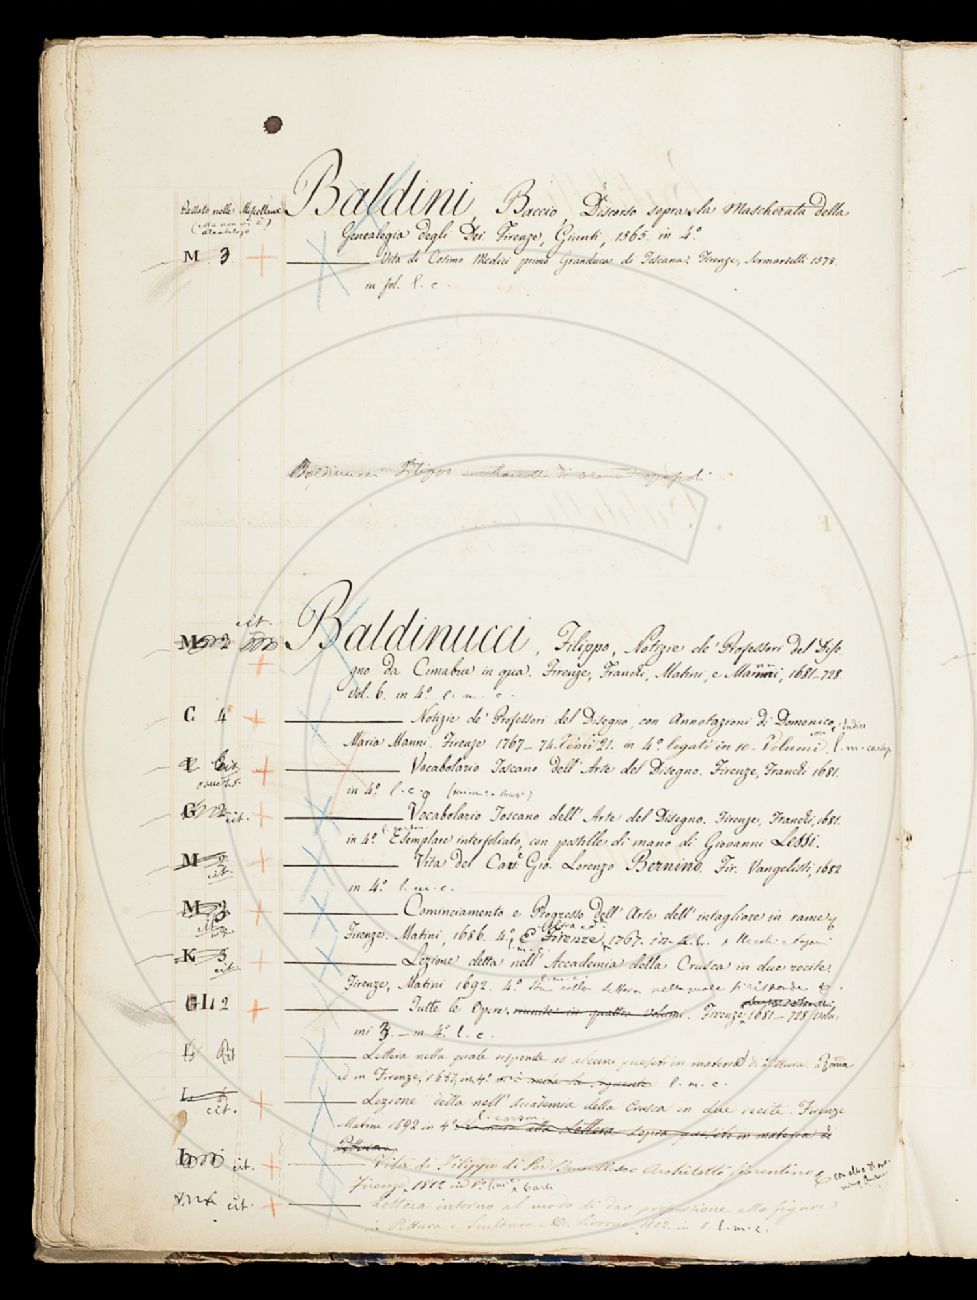 Passato nelle Miscellanee
Baldini, Baccio, Discorso sopra la Mascherata della
Genealogia degli Dei. Firenze, Giunti, 1565. in 4.º
M 3 Vita di Cosimo Medici primo Granduca di Toscana. Firenze, Sermartelli 1578.
in fol. l. c
Baldinucci Filippo Raccolta di alcuni opuscoli
cit.
M 2 Baldinucci, Filippo, Notizie de' Professori del Dise-
gno da Cimabue in qua. Firenze, Franchi, Matini, e Manni, 1681-728.
vol. 6. in 4.º l. m. c.
C 4 Notizie de' Professori del Disegno, con Annotazioni di Domenico
Maria Manni. Firenze 1767-74. Tomi 21. in 4.º legati in 10. Volumi. l. m. c
Vocabolario Toscano dell'Arte del Disegno. Firenze, Franchi 1681.
in 4.º l. c.
G 2 cit. Vocabolario Toscano dell'Arte del Disegno. Firenze, Franchi, 1681.
in 4.º Esemplare interfoliato, con postille di mano di Giovanni Lessi.
M cit. Vita del Cav.º Gio. Lorenzo Bernino. Fir. Vangelisti, 1682
in 4.º l. m. c.
M 3 Cominciamento e Progresso dell'Arte dell'intagliare in rame &
Firenze. Matini, 1686. 4.º, E Firenze, 1767. in 4.
K 5 cit. Lezione detta nell'Accademia della Crusca in due recite.
Firenze, Matini 1692. 4.º colla lettera nella quale si risponde &.
GII 2 Tutte le Opere, riunite in quattro volumi. Firenze, 1681-728 volu-
mi 3. in 4.º l. c.
L Lettera nella quale risponde ad alcuni quesiti in materie di Pittura. Roma
ed in Firenze, 1687, in 4.º l. m. c.
L cit. Lezione detta nell'Accademia della Crusca in due recite. Firenze
Matini 1692 in 4.º colla lettera sopra quesiti in materia di
Pittura
cit. Vita di Filippo di Ser Brunellesco Architetto fiorentino &
Firenze, 1812 in 8.º
cit. Lettera intorno al modo di dar proporzione alle figure
in Pittura e Scultura &. Livorno, 1802. in 8. l. m. c.